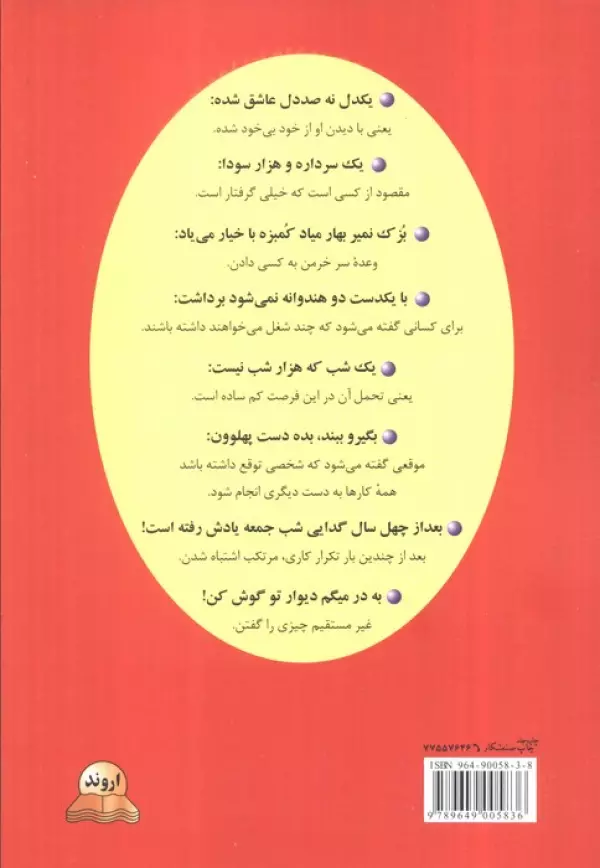 یکدل نه صددل عاشق شده:
یعنی با دیدن او از خود بی‌خود شده.
یک سرداره و هزار سودا:
مقصود از کسی است که خیلی گرفتار است.
بُزک نمیر بهار میاد کُمبزه با خیار می‌یاد:
وعدهٔ سر خرمن به کسی دادن.
با یکدست دو هندوانه نمی‌شود برداشت:
برای کسانی گفته می‌شود که چند شغل می‌خواهند داشته باشند.
یک شب که هزار شب نیست:
یعنی تحمل آن در این فرصت کم ساده است.
بگیرو ببند، بده دست پهلوون:
موقعی گفته می‌شود که شخصی توقع داشته باشد
همهٔ کارها به دست دیگری انجام شود.
بعداز چهل سال گدایی شب جمعه یادش رفته است!
بعد از چندین بار تکرار کاری، مرتکب اشتباه شدن.
به در میگم دیوار تو گوش کن!
غیر مستقیم چیزی را گفتن.
چاپ صنعتکار
ISBN 964-90058-3-8
9 789649 005836
اروند